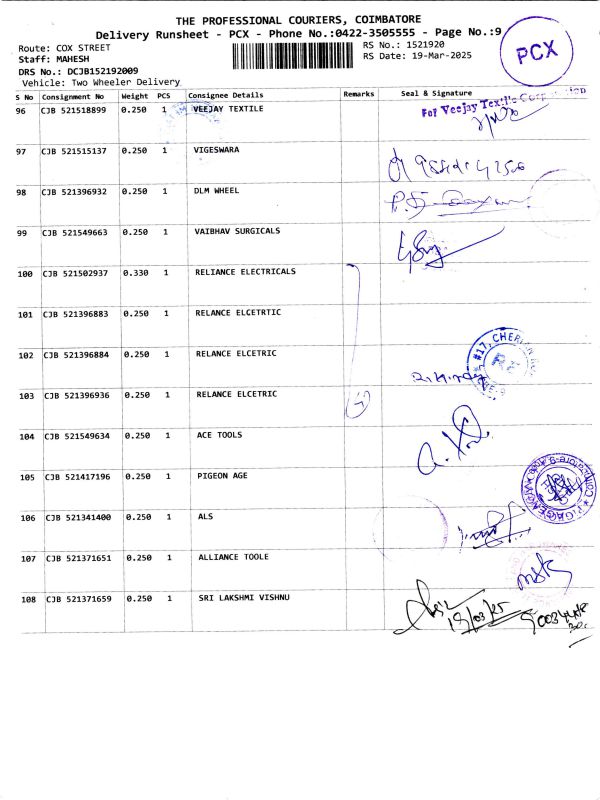 THE PROFESSIONAL COURIERS, COIMBATORE
Delivery Runsheet - PCX - Phone No.:0422-3505555 - Page No.:9
Route: COX STREET
Staff: MAHESH
DRS No.: DCJB152192009
Vehicle: Two Wheeler Delivery
RS No.: 1521920
RS Date: 19-Mar-2025
PCX
S No Consignment No Weight PCS Consignee Details Remarks Seal & Signature
96 CJB 521518899 0.250 1 VEEJAY TEXTILE For Veejay Textile Corporation
97 CJB 521515137 0.250 1 VIGESWARA
98 CJB 521396932 0.250 1 DLM WHEEL
99 CJB 521549663 0.250 1 VAIBHAV SURGICALS
100 CJB 521502937 0.330 1 RELIANCE ELECTRICALS
101 CJB 521396883 0.250 1 RELANCE ELCETRTIC
102 CJB 521396884 0.250 1 RELANCE ELCETRIC
103 CJB 521396936 0.250 1 RELANCE ELCETRIC
104 CJB 521549634 0.250 1 ACE TOOLS
105 CJB 521417196 0.250 1 PIGEON AGE
106 CJB 521341400 0.250 1 ALS
107 CJB 521371651 0.250 1 ALLIANCE TOOLE
108 CJB 521371659 0.250 1 SRI LAKSHMI VISHNU